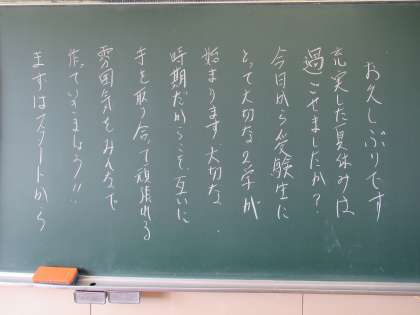 お久しぶりです
充実した夏休みは
過ごせましたか?
今日から受験生に
とって大切な2学が
始まります。大切な
時期だからこそ、互いに
手を取り合って頑張れる
雰囲気をみんなで
作っていきましょう!!
まずはスタートから